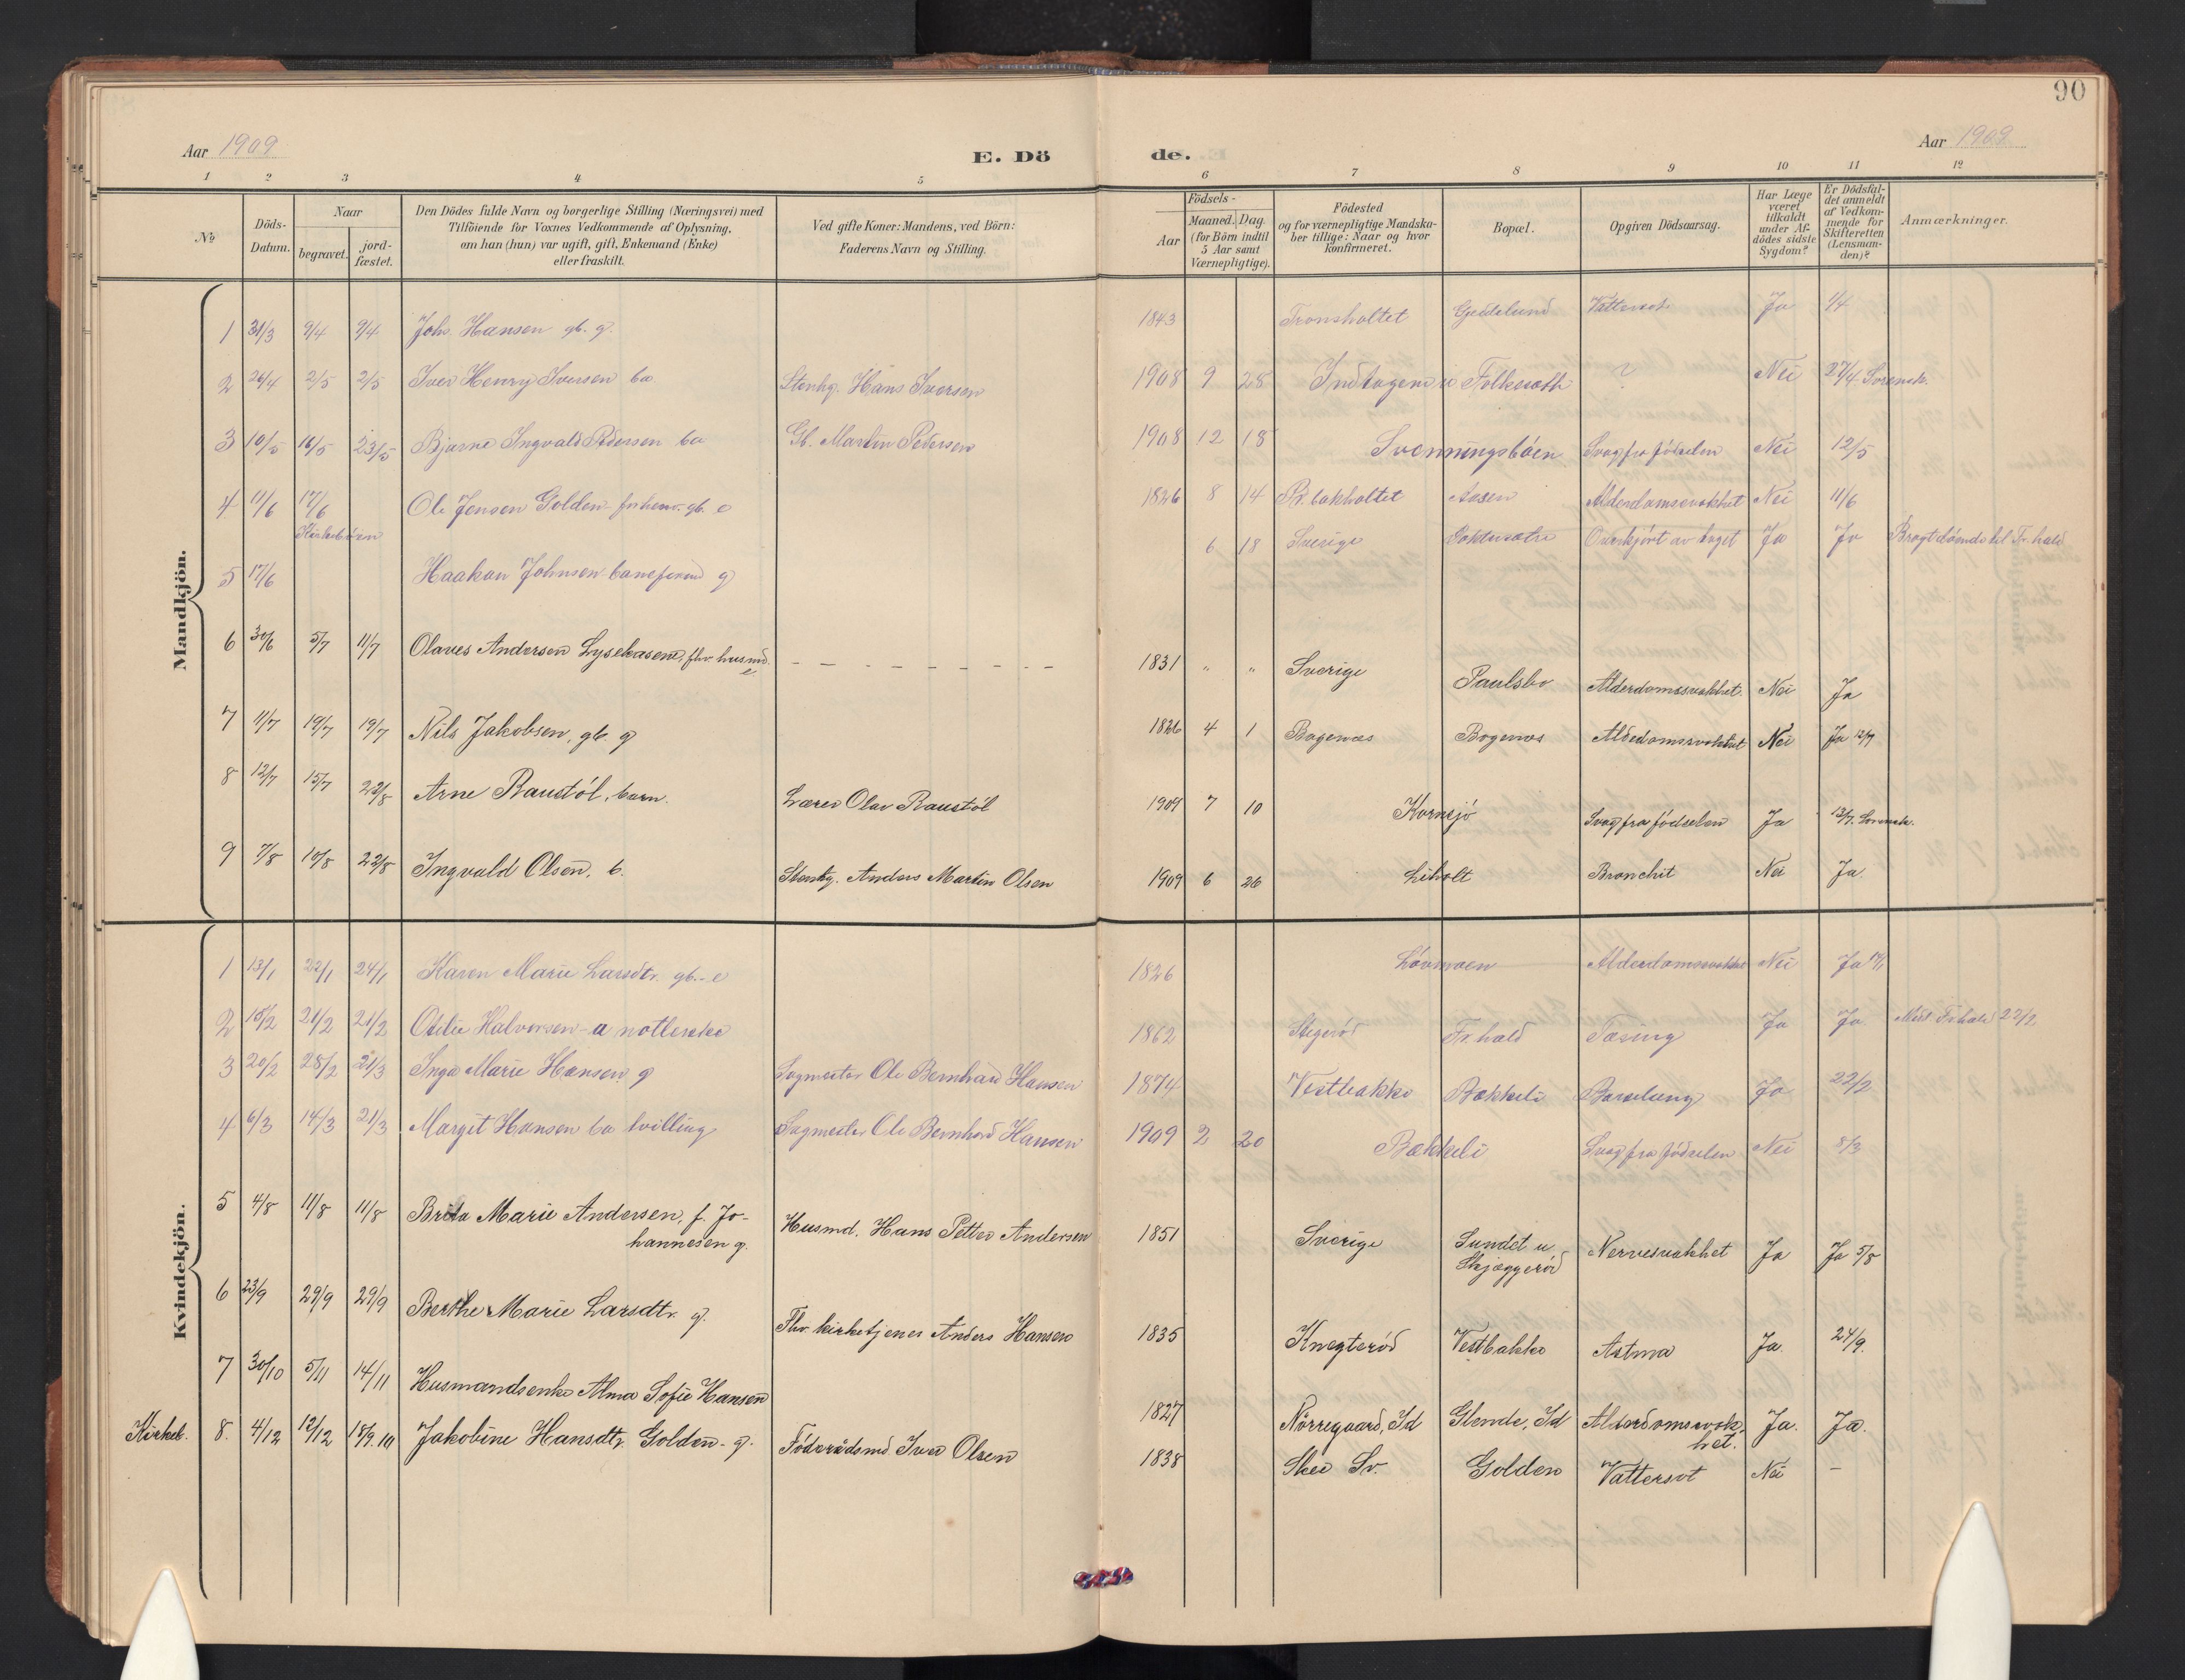 90
Aar 1909 E. Dö de. Aar 1909
1 2 3 4 5 6 7 8 9 10 11 12
№
Döds-Datum.
Naar
begravet.
jord-fæstet.
Den Dödes fulde Navn og borgerlige Stilling (Næringsvei) med
Tilföiende for Voxnes Vedkommende af Oplysning,
om han (hun) var ugift, gift, Enkemand (Enke)
eller fraskilt.
Ved gifte Koner: Mandens, ved Börn:
Faderens Navn og Stilling.
Födsels-
Aar
Maaned. Dag.
(for Börn indtil
5 Aar samt
Værnepligtige).
Födested
og for værnepligtige Mandska-
ber tillige: Naar og hvor
konfirmeret.
Bopæl.
Opgiven Dödsaarsag.
Har Læge
været
tilkaldt
under Af-
dödes sidste
Sygdom?
Er Dödsfal-
det anmeldt
af Vedkom-
mende for
Skifteretten
(Lensman-
den)?
Anmærkninger.
Mandkjön.
1 31/3 9/4 9/4 Joh. Hansen gb. g. 1843 Tronsholtet Ja 1/4
2 26/4 2/5 2/5 Iver Henry Iversen ba Stenhg. Hans Iversen 1908 9 28 Indtagen u Folkesæth ? Nei 27/4
3 10/5 16/5 23/5 Bjarne Ingvald Pedersen ba Gb. Martin Pedersen 1908 12 18 Svenningsböen Svag fra födselen Nei 12/5
4 11/6 17/6 Ole Jensen Golden forhenv. gb. e 1826 8 14 Aasen Alderdomssvakhet Nei 11/6
Kirkeböen
5 17/6 Haakon Johnsen g 6 18 Sverige Overkjört av toget Ja Ja Bragt döende til Fr.hald
6 30/6 5/7 11/7 Olaves Andersen Lysekasene, fhv. husmd. e - - - - - - - - 1831 " " Sverige Paulsbo Alderdomssvakhet Nei Ja
7 11/7 19/7 19/7 Nils Jakobsen, gb. g 1826 4 1 Bogenæs Bogenæs Alderdomssvakhet Nei Ja 12/7
8 12/7 15/7 22/8 Arne Raustöl, barn. Lærer Olav Raustöl 1909 7 10 Kornsjö Svag fra födselen Ja 13/7
9 7/8 10/8 22/8 Ingvald Olsen, b. Stenhg. Anders Martin Olsen 1909 6 26 Liholt Bronchit Nei Ja
Kvindekjön.
1 13/1 22/1 24/1 Karen Marie Larsdtr. gb.-e 1826 Lövmoen Alderdomssvakhet Nei Ja
2 15/2 21/2 21/2 Otilie Halvorsen 1862 Stegeröd Fr.hald Tæring Ja Ja Meld Fr.hald 22/2
3 20/2 28/2 21/3 Inga Marie Hansen g Sagmester Ole Bernhard Hansen 1874 Vestbakke Bækkeli Ja 22/2
4 6/3 14/3 21/3 Margit Hansen ba tvilling Sagmester Ole Bernhard Hansen 1909 2 20 Bækkeli Svag fra födselen Nei 8/3
5 4/8 11/8 11/8 Brita Marie Andersen, f. Jo-
hannesen g. Husmd. Hans Petter Andersen 1851 Sverige Sundet u. Skjæggeröd Nervesvakhet Ja Ja 5/8
6 23/9 29/9 29/9 Berthe Marie Larsdtr. g. Fhv. kirketjener Anders Hansen 1835 Knegteröd Vestbakke Astma Ja. 24/9.
7 30/10 5/11 14/11 Husmandsenke Alma Sofie Hansen 1827 Nörregaard, Id Glende, Id Alderdomssvak-
het. Ja. Ja.
Kirkeb. 8. 4/12 12/12 18/9.10 Jakobine Hansdtr. Golden - g. Föderådsmd Iver Olsen 1838 Skee Sv. Golden Vattersot Nei -